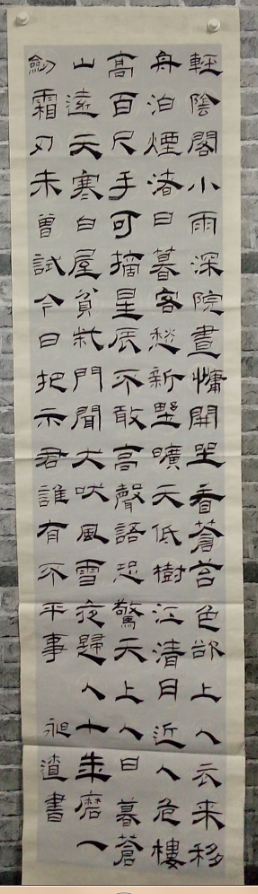 輕陰閣小雨深院晝慵開坐看蒼苔色欲上人衣来移
舟泊煙渚日暮客愁新埜曠天低樹江清月近人危樓
高百尺手可摘星辰不敢高聲語恐驚天上人日暮蒼
山遠天寒白屋貧柴門聞犬吠風雪夜歸人十年磨一
劍霜刃未曾試今日把示君誰有不平事 昶渣書